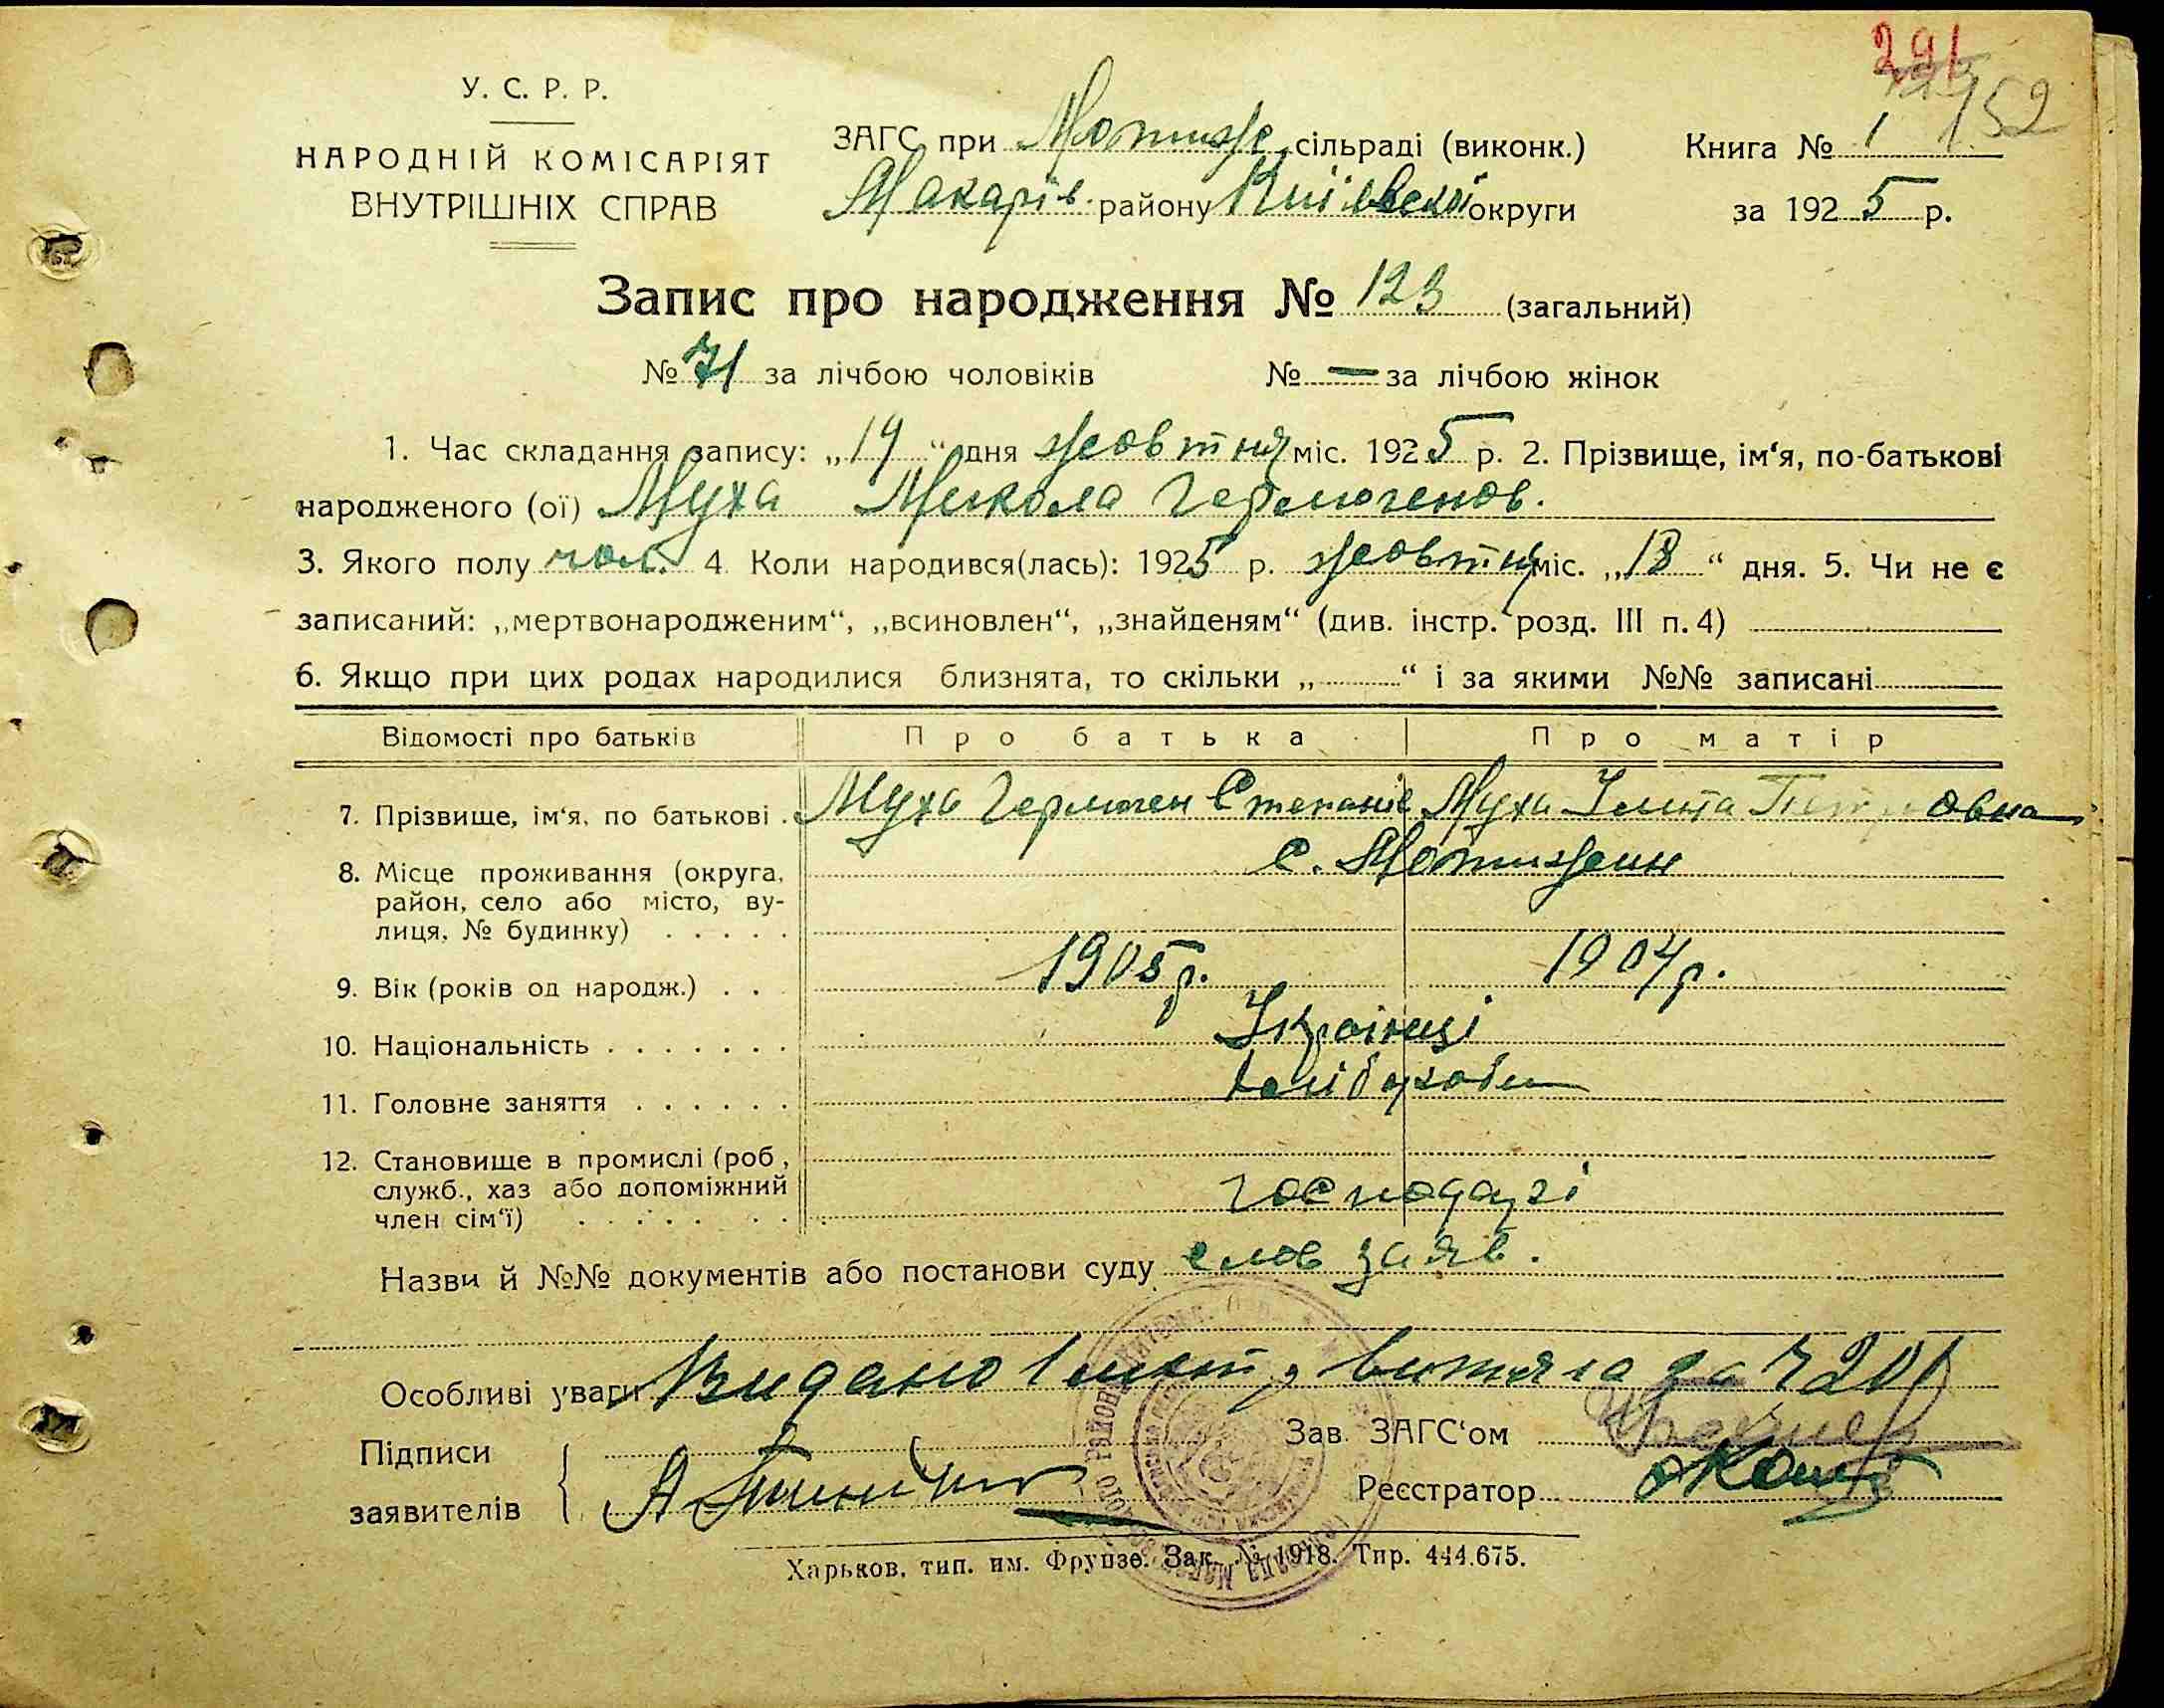 291
152
У. С. Р. Р.
НАРОДНІЙ КОМІСАРІЯТ
ВНУТРІШНІХ СПРАВ
ЗАГС при Мотиж. сільраді (виконк.)
Макарів. району Київської округи
Книга № 1
за 1925 р.
Запис про народження № 123 (загальний)
№ 71 за лічбою чоловіків № — за лічбою жінок
1. Час складання запису: „19“ дня жовтня міс. 1925 р. 2. Прізвище, ім‘я, по-батькові
народженого (ої) Муха Микола Гермогенов.
3. Якого полу чол. 4. Коли народився(лась): 1925 р. жовтня міс. „18“ дня. 5. Чи не є
записаний: „мертвонародженим“, „всиновлен“, „знайденям“ (див. інстр. розд. III п. 4)
6. Якщо при цих родах народилися близнята, то скільки „ “ і за якими №№ записані
Відомості про батьків Про батька Про матір
7. Прізвище, ім‘я, по батькові . Муха Гермоген Степанів Муха Петровна
8. Місце проживання (округа,
район, село або місто, ву-
лиця, № будинку) . . . . .
с. Мотижин
9. Вік (років од народж.) . . 1905 р. 1904 р.
10. Національність . . . . . . . Українці
11. Головне заняття . . . . . . хлібороби
12. Становище в промислі (роб.,
служб., хаз або допоміжний
член сім‘ї) . . . . . . .
господарі
Назви й №№ документів або постанови суду слов заяв.
Особливі уваги Видано витяга за № 201
Підписи
заявителів
Зав. ЗАГС‘ом
Реєстратор
Харьков, тип. им. Фрунзе. Зак. № 1918. Тир. 444.675.